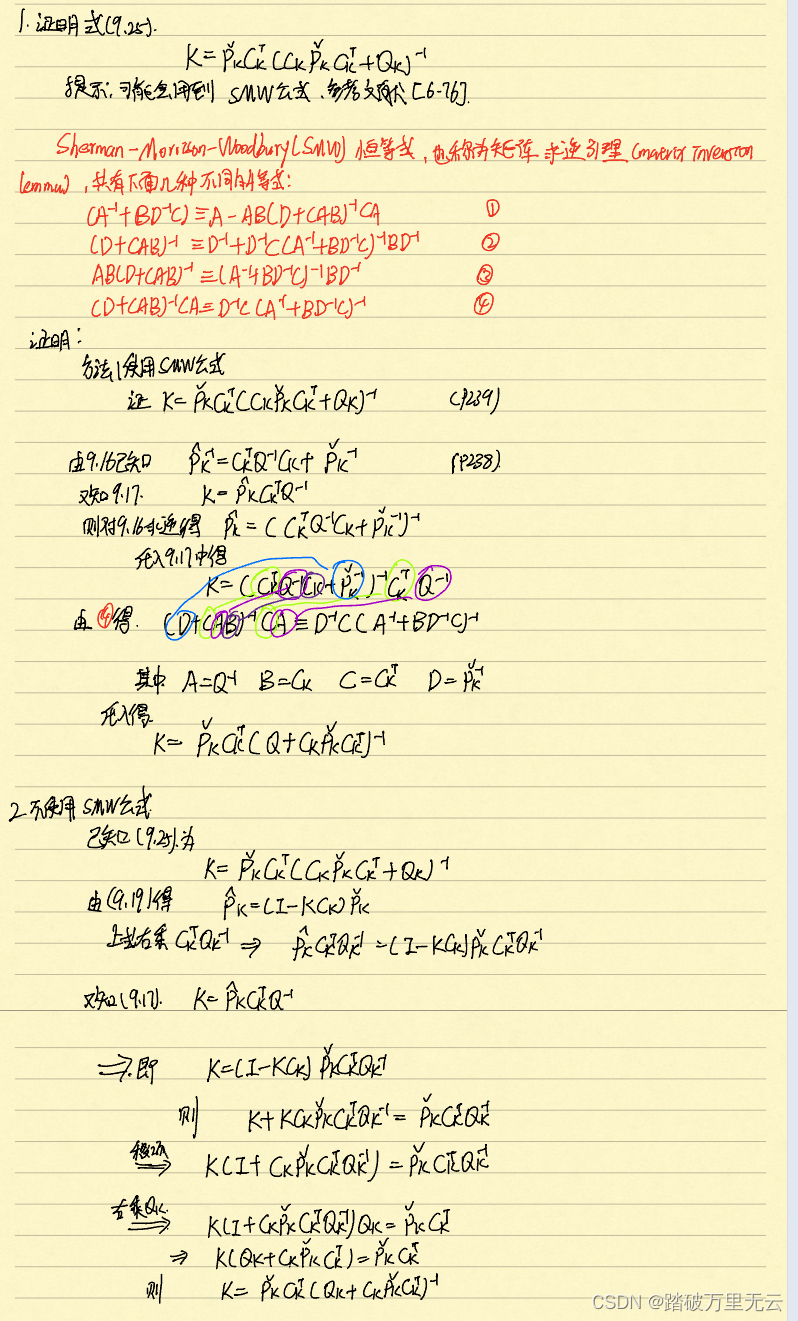 1. 证明式(9.25).
K = P̌ₖCₖᵀ(CₖP̌ₖCₖᵀ+Qₖ)⁻¹
提示: 可能会用到 SMW公式, 参考文献[6-76].
Sherman-Morrison-Woodbury(SMW) 恒等式, 也称为矩阵求逆引理 (matrix inversion
lemma), 共有下面几种不同的等式:
(A⁻¹+BD⁻¹C) ≡ A - AB(D+CAB)⁻¹CA ①
(D+CAB)⁻¹ ≡ D⁻¹+D⁻¹C(A⁻¹+BD⁻¹C)⁻¹BD⁻¹ ②
AB(D+CAB)⁻¹ ≡ (A⁻¹+BD⁻¹C)⁻¹BD⁻¹ ③
(D+CAB)⁻¹CA ≡ D⁻¹C(A⁻¹+BD⁻¹C)⁻¹ ④
证明:
方法1使用SMW公式
证 K = P̌ₖCₖᵀ(CₖP̌ₖCₖᵀ+Qₖ)⁻¹ (P239)
由9.16已知 P̂ₖ⁻¹ = CₖᵀQ⁻¹Cₖ + P̌ₖ⁻¹ (P238)
又知9.17. K = P̂ₖCₖᵀQ⁻¹
则对9.16求逆得 P̂ₖ = (CₖᵀQ⁻¹Cₖ+P̌ₖ⁻¹)⁻¹
代入9.17中得
K = (CₖᵀQ⁻¹Cₖ+P̌ₖ⁻¹)⁻¹CₖᵀQ⁻¹
由④得. (D+CAB)⁻¹CA ≡ D⁻¹C(A⁻¹+BD⁻¹C)⁻¹
其中 A=Q⁻¹ B=Cₖ C=Cₖᵀ D=P̌ₖ⁻¹
代入得
K = P̌ₖCₖᵀ(Q+CₖP̌ₖCₖᵀ)⁻¹
2. 不使用SMW公式
已知(9.25).为
K = P̌ₖCₖᵀ(CₖP̌ₖCₖᵀ+Qₖ)⁻¹
由(9.19)得 P̂ₖ = (I-KCₖ)P̌ₖ
上式右乘CₖᵀQₖ⁻¹ ⇒ P̂ₖCₖᵀQₖ⁻¹ = (I-KCₖ)P̌ₖCₖᵀQₖ⁻¹
又知(9.17). K = P̂ₖCₖᵀQ⁻¹
⇒. 即 K = (I-KCₖ)P̌ₖCₖᵀQₖ⁻¹
则 K+KCₖP̌ₖCₖᵀQₖ⁻¹ = P̌ₖCₖᵀQₖ⁻¹
⇒ K(I+CₖP̌ₖCₖᵀQₖ⁻¹) = P̌ₖCₖᵀQₖ⁻¹
右乘Qₖ ⇒ K(I+CₖP̌ₖCₖᵀQₖ⁻¹)Qₖ = P̌ₖCₖᵀ
⇒ K(Qₖ+CₖP̌ₖCₖᵀ) = P̌ₖCₖᵀ
则 K = P̌ₖCₖᵀ(Qₖ+CₖP̌ₖCₖᵀ)⁻¹
CSDN @踏破万里无云